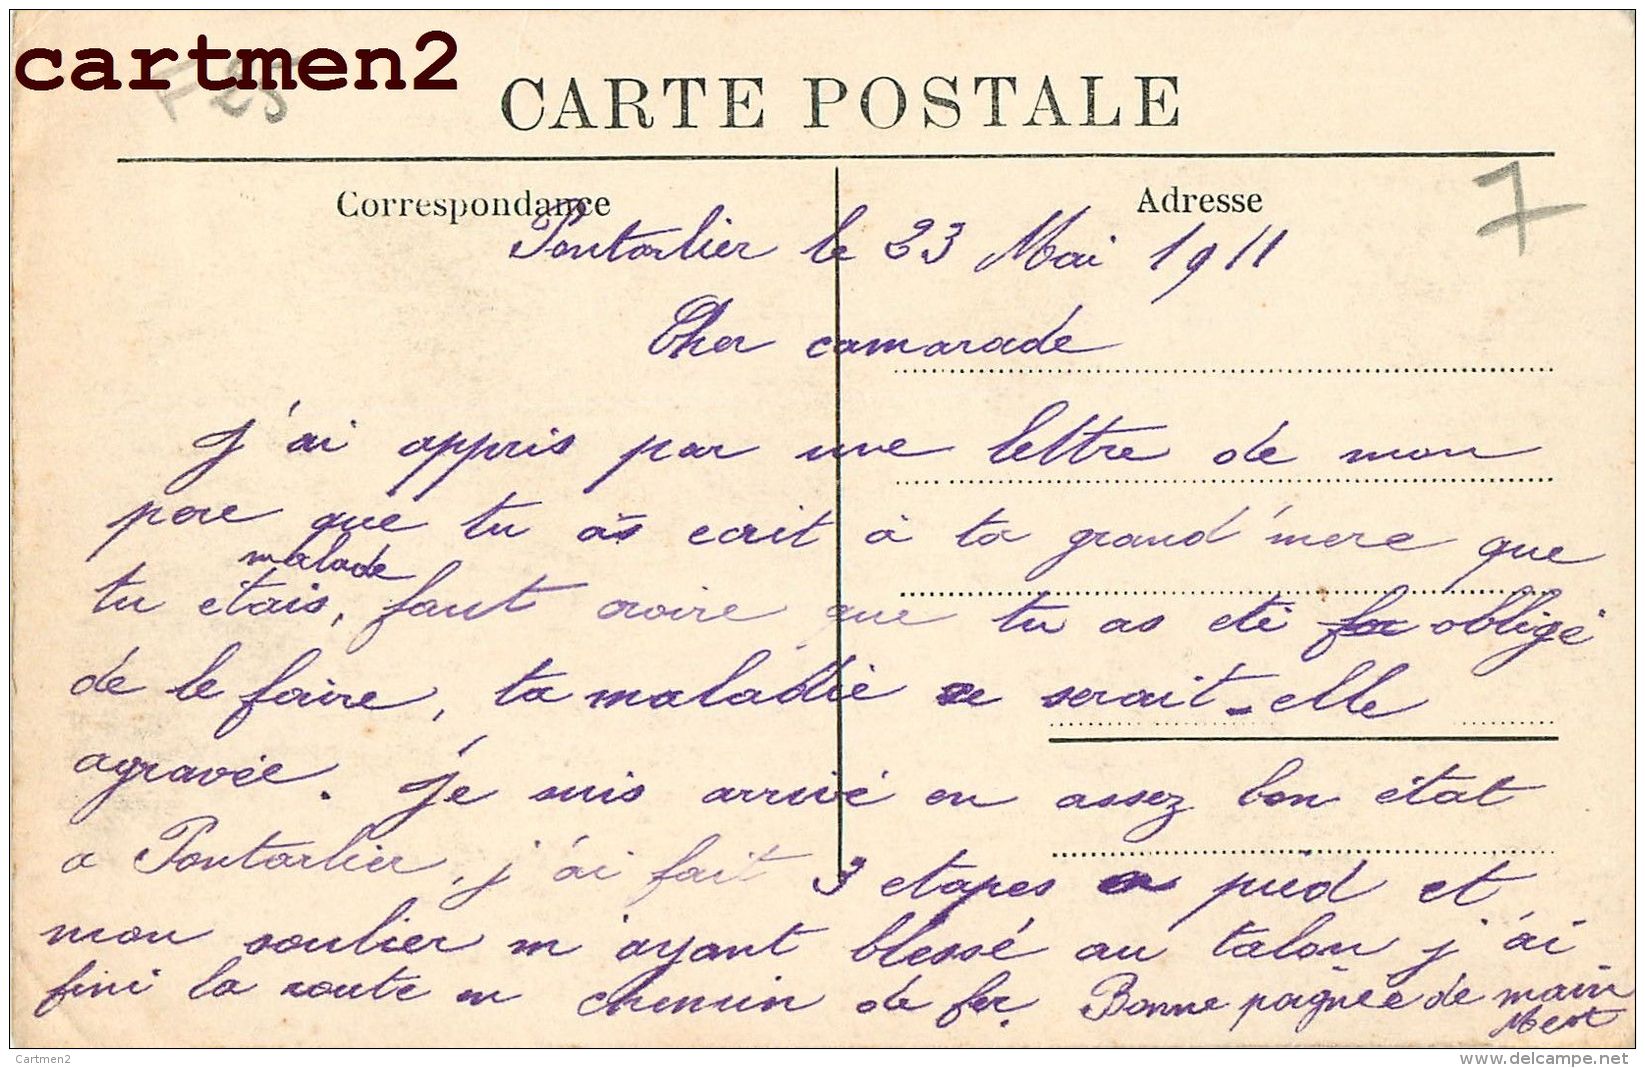 cartmen2
F25
CARTE POSTALE
Correspondance
Adresse
7
Pontarlier le 23 Mai 1911
Cher camarade
J'ai appris par une lettre de mon
pere que tu as ecrit à ta grand'mere que
malade
tu étais, faut croire que tu as été obligé
de le faire, ta maladie se serait-elle
agravée. Je suis arrivé en assez bon état
a Pontarlier, j'ai fait 3 etapes a pied et
mon soulier m'ayant blessé au talon j'ai
fini la route en chemin de fer. Bonne poignée de main
Cartmen2
delcampe.net